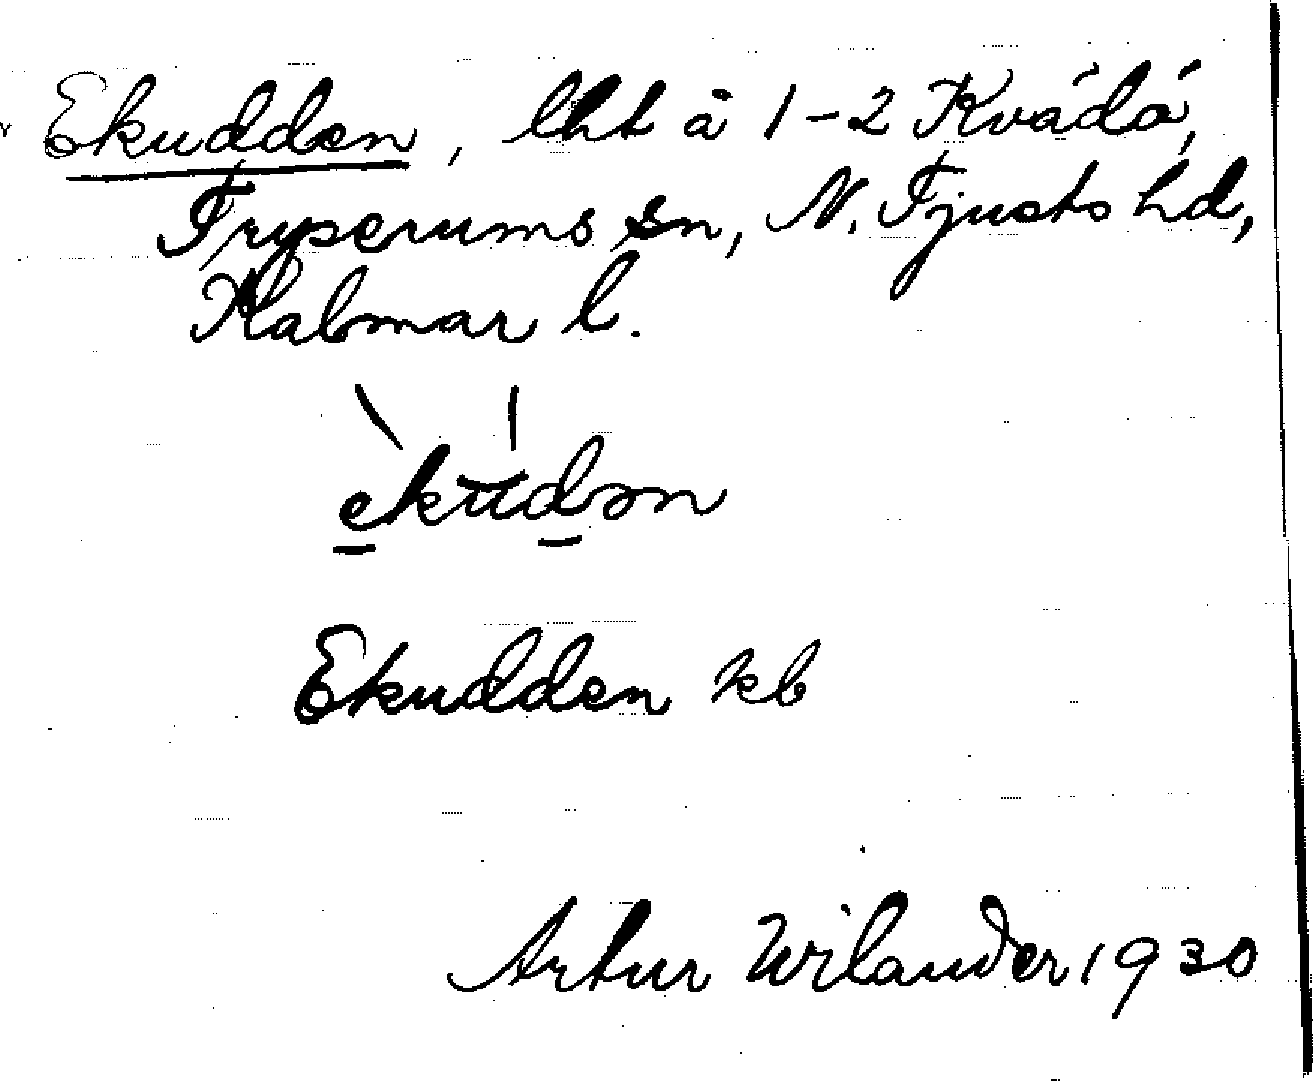 Ekudden, lht å 1-2 Kvädö,
Tryserums sn, N. Tjusts hd,
Kalmar l.
ekudən
Ekudden kb
Artur Wilander 1930